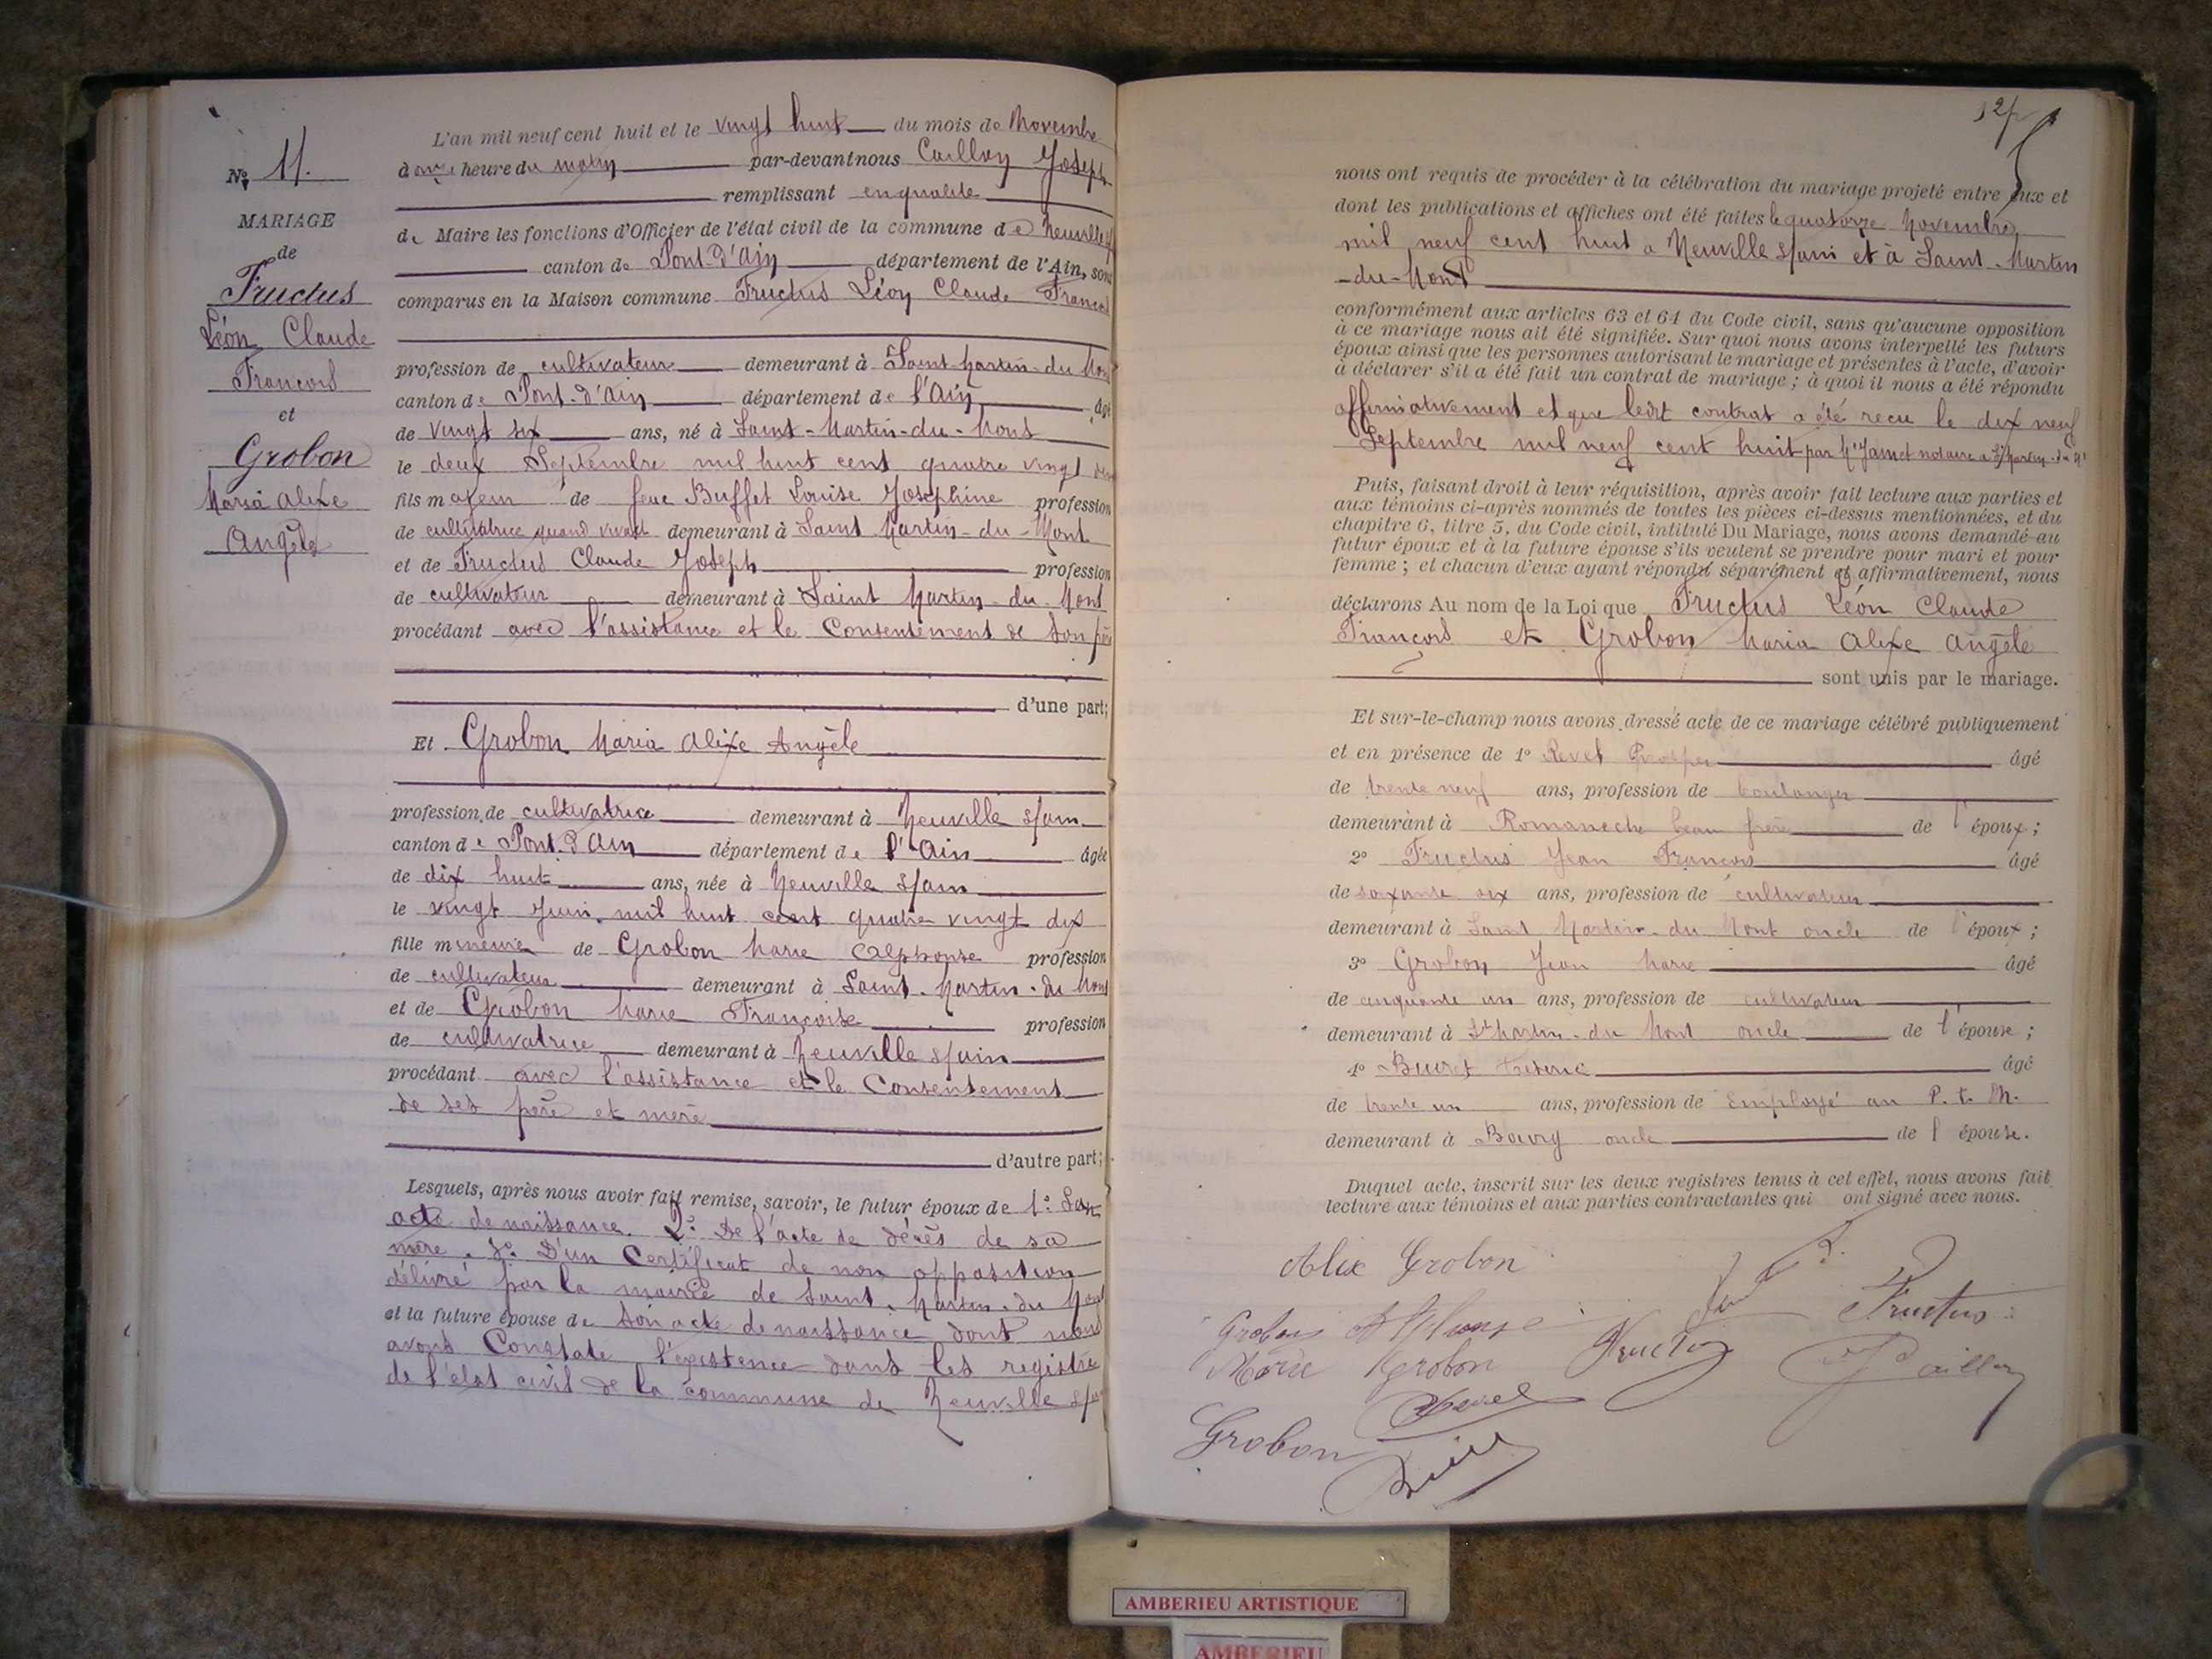 Nº 11.
MARIAGE
de
Fructus
Léon Claude
Francois
et
Grobon
Maria Alixe
Angèle
L'an mil neuf cent huit et le vingt huit du mois de Novembre
à onze heure du matin par-devant nous Caillon Joseph
remplissant en qualité
de Maire les fonctions d'Officier de l'état civil de la commune de Neuville s/
canton de Pont-d'Ain département de l'Ain, sont
comparus en la Maison commune Fructus Léon Claude Francois
profession de cultivateur demeurant à Saint Martin-du Mont
canton de Pont-d'Ain département de l'Ain âgé
de vingt six ans, né à Saint-Martin-du-Mont
le deux Septembre mil huit cent quatre vingt deux
fils majeur de feue Buffet Louise Josephine profession
de cultivatrice quand vivait demeurant à Saint Martin-du-Mont
et de Fructus Claude Joseph profession
de cultivateur demeurant à Saint Martin-du-Mont
procédant avec l'assistance et le Consentement de son père
d'une part;
Et Grobon Maria Alixe Angèle
profession de cultivatrice demeurant à Neuville s/ain
canton de Pont-d'Ain département de l'Ain âgée
de dix huit ans, née à Neuville s/ain
le vingt Juin mil huit cent quatre vingt dix
fille mineure de Grobon Marie Alphonse profession
de cultivateur demeurant à Saint-Martin-du Mont
et de Grobon Marie Françoise profession
de cultivatrice demeurant à Neuville s/ain
procédant avec l'assistance et le Consentement
de ses père et mère
d'autre part;
Lesquels, après nous avoir fait remise, savoir, le futur époux de 1º Son
acte de naissance. 2º De l'acte de décès de sa
mère. 3º D'un Certificat de non opposition
délivré par la mairie de Saint-Martin-du Mont
et la future épouse de Son acte de naissance dont nous
avons Constaté l'existence dans les registre
de l'état civil de la commune de Neuville s/ain
nous ont requis de procéder à la célébration du mariage projeté entre eux et
dont les publications et affiches ont été faites le quatorze Novembre
mil neuf cent huit a Neuville s/ain et à Saint-Martin
-du-Mont
conformément aux articles 63 et 64 du Code civil, sans qu'aucune opposition
à ce mariage nous ait été signifiée. Sur quoi nous avons interpellé les futurs
époux ainsi que les personnes autorisant le mariage et présentes à l'acte, d'avoir
à déclarer s'il a été fait un contrat de mariage; à quoi il nous a été répondu
affirmativement et que ledit contrat a été recu le dix neuf
Septembre mil neuf cent huit par Me Jamet notaire a St Martin-du Mt
Puis, faisant droit à leur réquisition, après avoir fait lecture aux parties et
aux témoins ci-après nommés de toutes les pièces ci-dessus mentionnées, et du
chapitre 6, titre 5, du Code civil, intitulé Du Mariage, nous avons demandé au
futur époux et à la future épouse s'ils veulent se prendre pour mari et pour
femme; et chacun d'eux ayant répondu séparément et affirmativement, nous
déclarons Au nom de la Loi que Fructus Léon Claude
Francois et Grobon Maria Alixe Angèle
sont unis par le mariage.
Et sur-le-champ nous avons dressé acte de ce mariage célébré publiquement
et en présence de 1º Revel Prosper âgé
de trente neuf ans, profession de boulanger
demeurant à Romaneche beau frère de l'époux;
2º Fructus Jean Francois âgé
de soixante six ans, profession de cultivateur
demeurant à Saint Martin-du Mont oncle de l'époux;
3º Grobon Jean Marie âgé
de cinquante un ans, profession de cultivateur
demeurant à St Martin-du Mont oncle de l'épouse;
4º âgé
de trente un ans, profession de Employé au P. L. M.
demeurant à Bourg oncle de l'épouse.
Duquel acte, inscrit sur les deux registres tenus à cet effet, nous avons fait
lecture aux témoins et aux parties contractantes qui ont signé avec nous.
Alix Grobon
Grobon Alphonse
Fructus
Marie Grobon
Fructus
Caillon
Revel
Grobon
AMBERIEU ARTISTIQUE
AMBERIEU